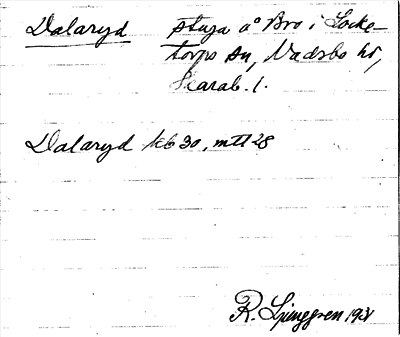 Dalaryd stuga å Bro i Locke-
torps sn, Vadsbo hd,
Skarab. l.
Dalaryd kb 30, mtl 28
R. Ljunggren 1931